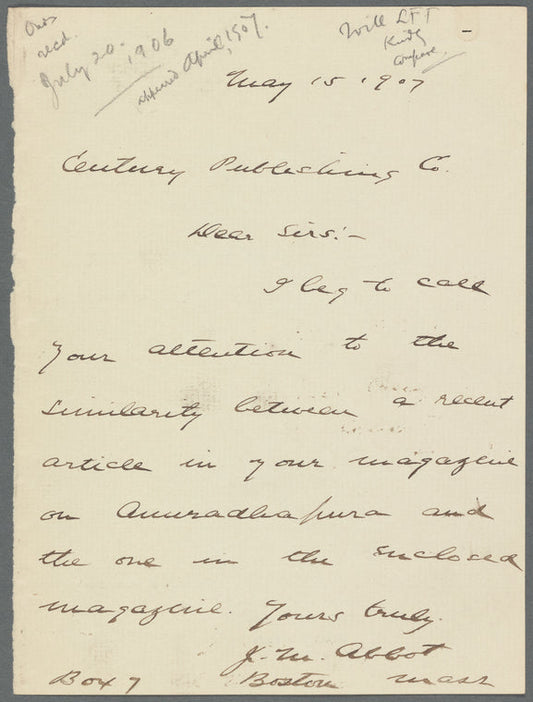 Ours
recd.
July 20. 1906
appeared April, 1907.
Will LFT
Kindly
compare
May 15 1907
Century Publishing Co.
Dear Sirs:-
I beg to call
your attention to the
similarity between a recent
article in your magazine
on Anuradhapura and
the one in the enclosed
magazine. Yours truly.
J. M. Abbot
Box 7 Boston Mass